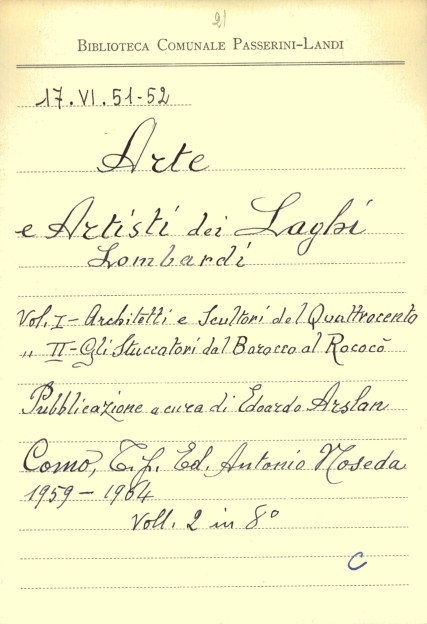 2)
BIBLIOTECA COMUNALE PASSERINI-LANDI
17.VI.51-52
Arte
e Artisti dei Laghi
Lombardi
Vol. I - Architetti e Scultori del Quattrocento
„ II - Gli Stuccatori dal Barocco al Rococò
Pubblicazione a cura di Edoardo Arslan
Como, Tip. Ed. Antonio Noseda
1959 - 1964
Voll. 2 in 8°
C